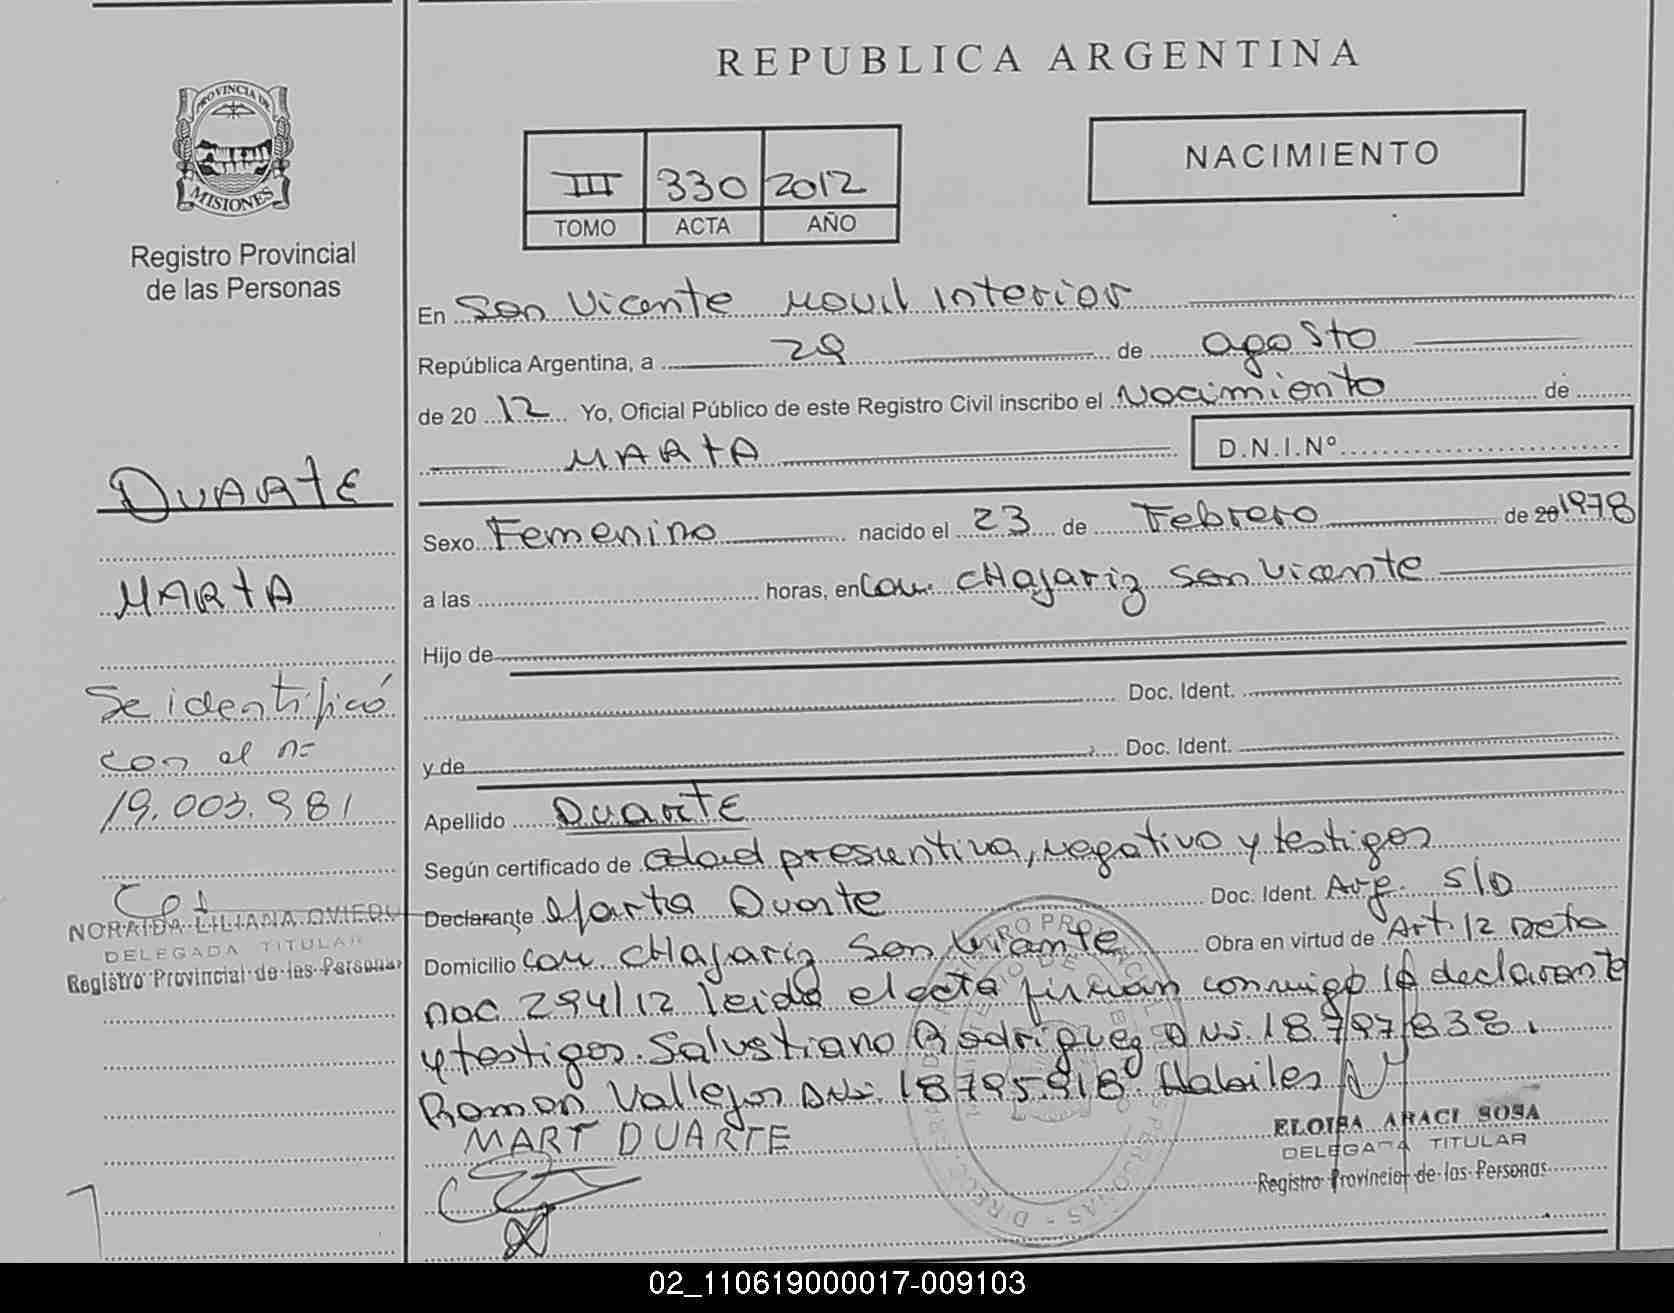 REPUBLICA ARGENTINA
PROVINCIA DE
MISIONES
Registro Provincial
de las Personas
III 330 2012
TOMO ACTA AÑO
NACIMIENTO
En San Vicente Movil Interior
República Argentina, a 29 de agosto
de 20 12 Yo, Oficial Público de este Registro Civil inscribo el Nacimiento de
MARTA D.N.I.Nº
Sexo Femenino nacido el 23 de Febrero de 20 1978
a las horas, en Col. CHafariz San Vicente
Hijo de
Doc. Ident.
y de Doc. Ident.
Apellido Duarte
Según certificado de edad presuntiva, negativo y testigos
Declarante Marta Duarte Doc. Ident. Arg. S/D
Domicilio Col. CHafariz San Vicente Obra en virtud de Art. 12 Dcto
nac 294/12 leida el acta firman conmigo la declarante
y testigos. Salustiano Rodriguez DNi. 18.797.838.
Ramon Vallejos DNi. 18795918 Habiles
MART DUARTE
ELOISA ARACI SOSA
DELEGADA TITULAR
Registro Provincial de las Personas
DUARTE
MARTA
Se identificó
con el nº
19.003.981
NORAIDA LILIANA OVIEDO
DELEGADA TITULAR
Registro Provincial de las Personas
02_110619000017-009103